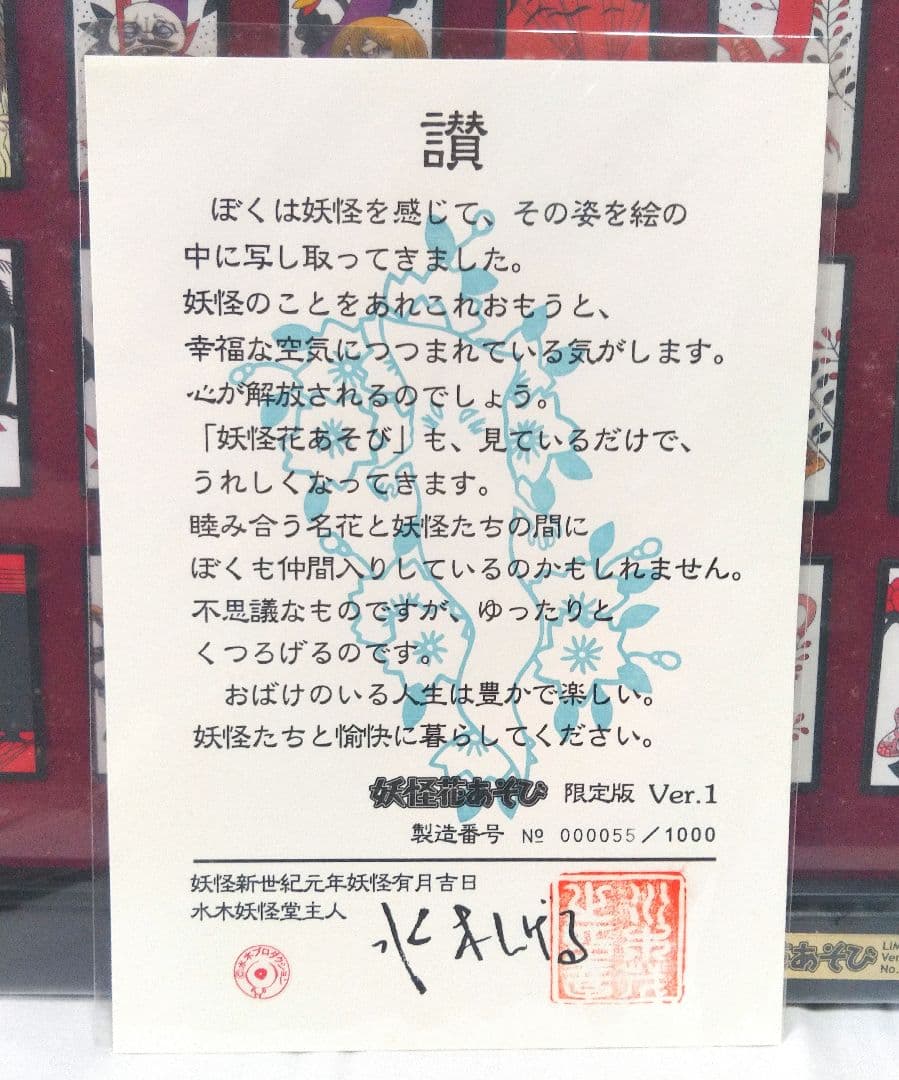 讃
ぼくは妖怪を感じて、その姿を絵の
中に写し取ってきました。
妖怪のことをあれこれおもうと、
幸福な空気につつまれている気がします。
心が解放されるのでしょう。
「妖怪花あそび」も、見ているだけで、
うれしくなってきます。
睦み合う名花と妖怪たちの間に
ぼくも仲間入りしているのかもしれません。
不思議なものですが、ゆったりと
くつろげるのです。
おばけのいる人生は豊かで楽しい。
妖怪たちと愉快に暮らしてください。
妖怪花あそび 限定版 Ver.1
製造番号 № 000055/1000
妖怪新世紀元年妖怪有月吉日
水木妖怪堂主人
水木しげる
©水木プロダクション
あそび
Ver
No.